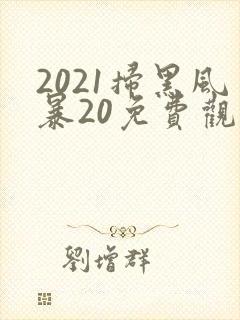 2021掃黑风
暴20免費觀
劉增群